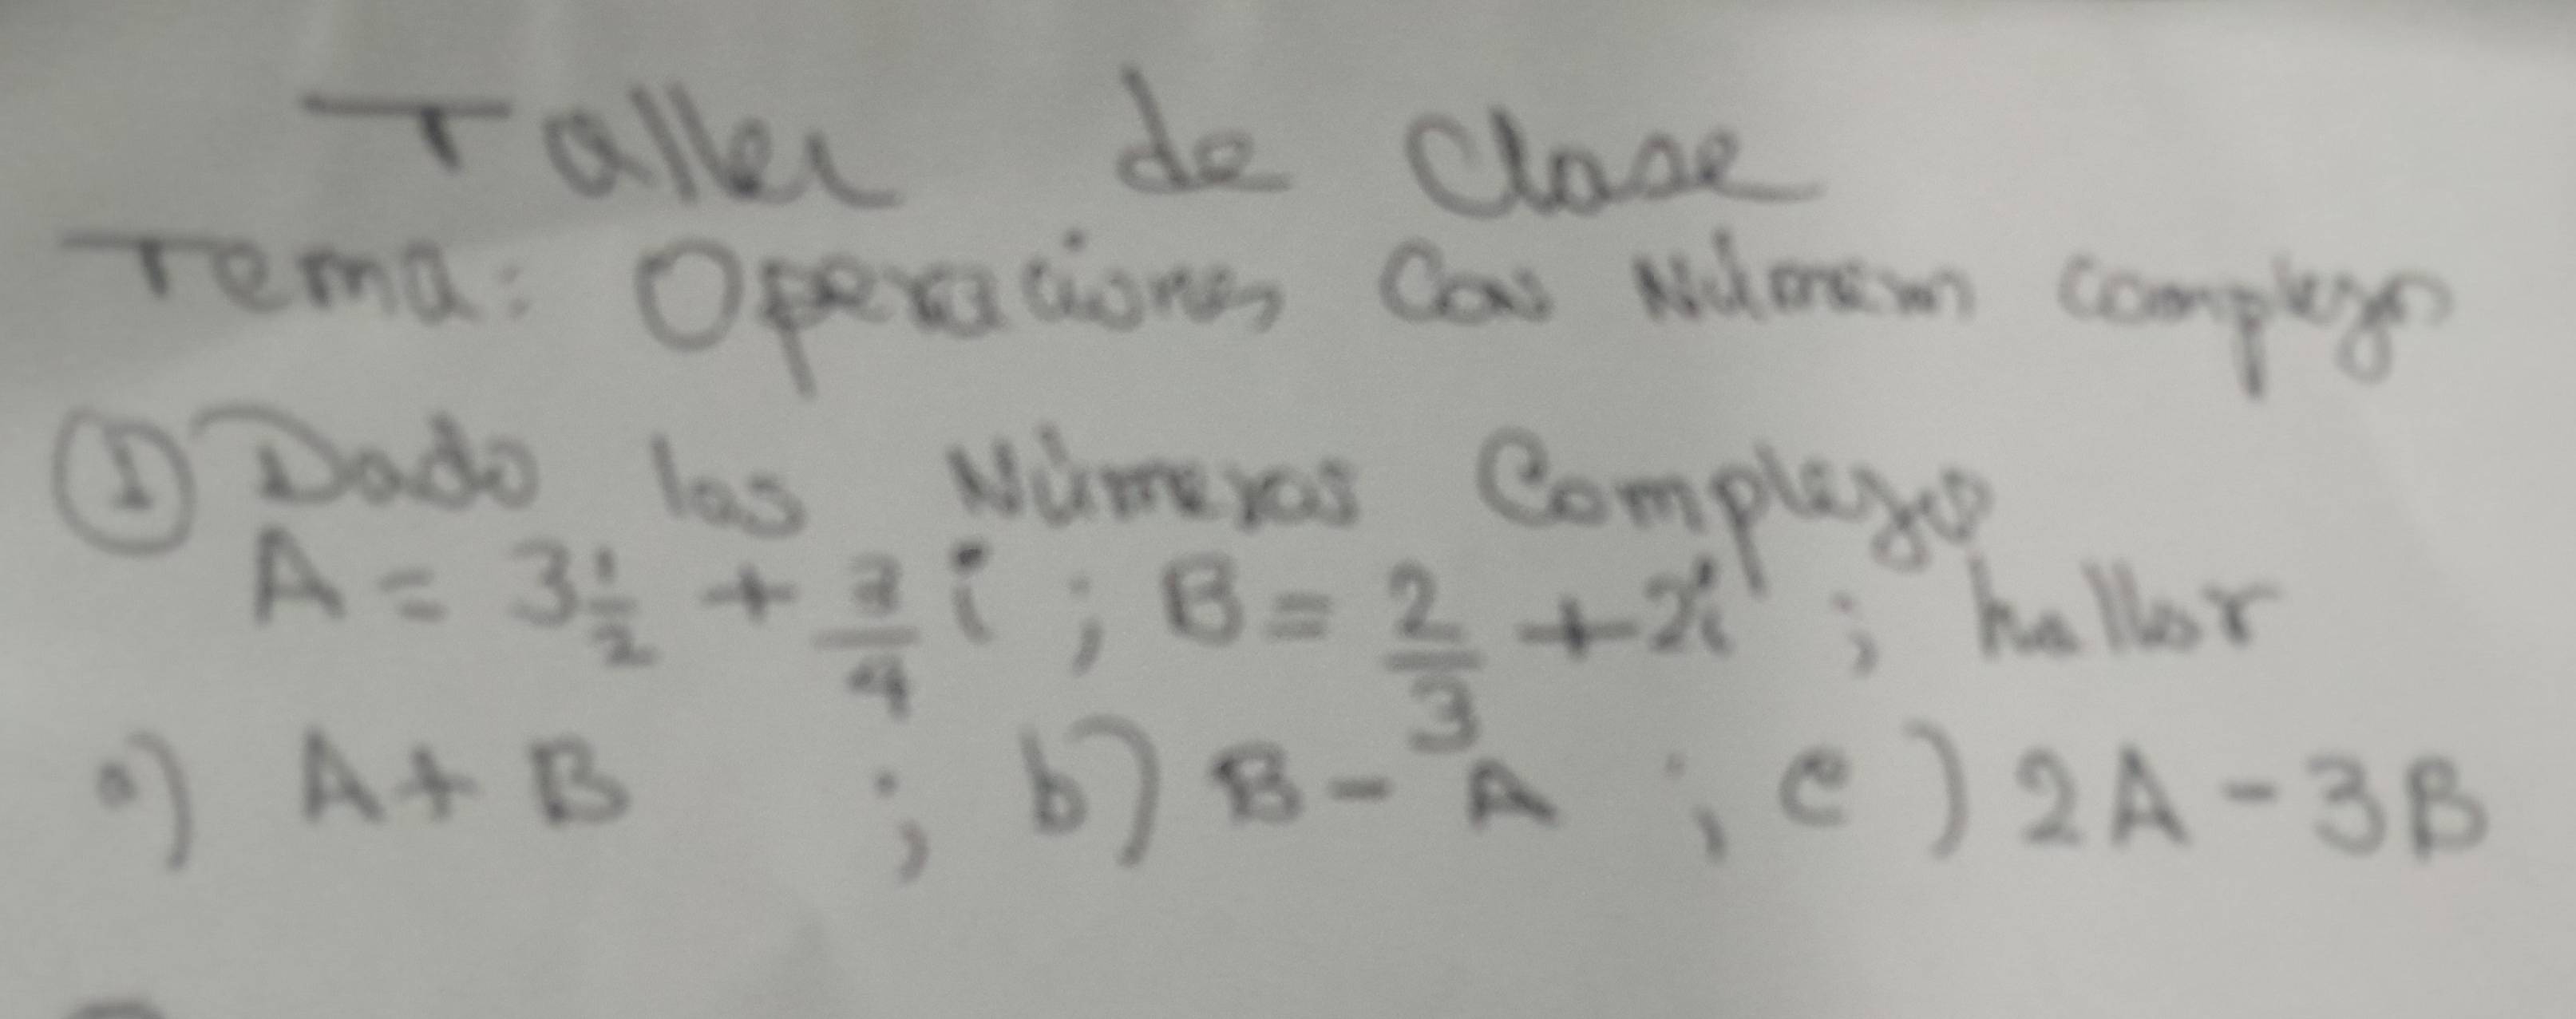 Taller de Clase
Tema: Operaciones Con Números complejos
① Dado los Números Complejos
A = 3 1/2 + 3/4 i ; B = 2/3 + 2i ; hallar
a) A + B ; b) B - A ; c) 2A - 3B